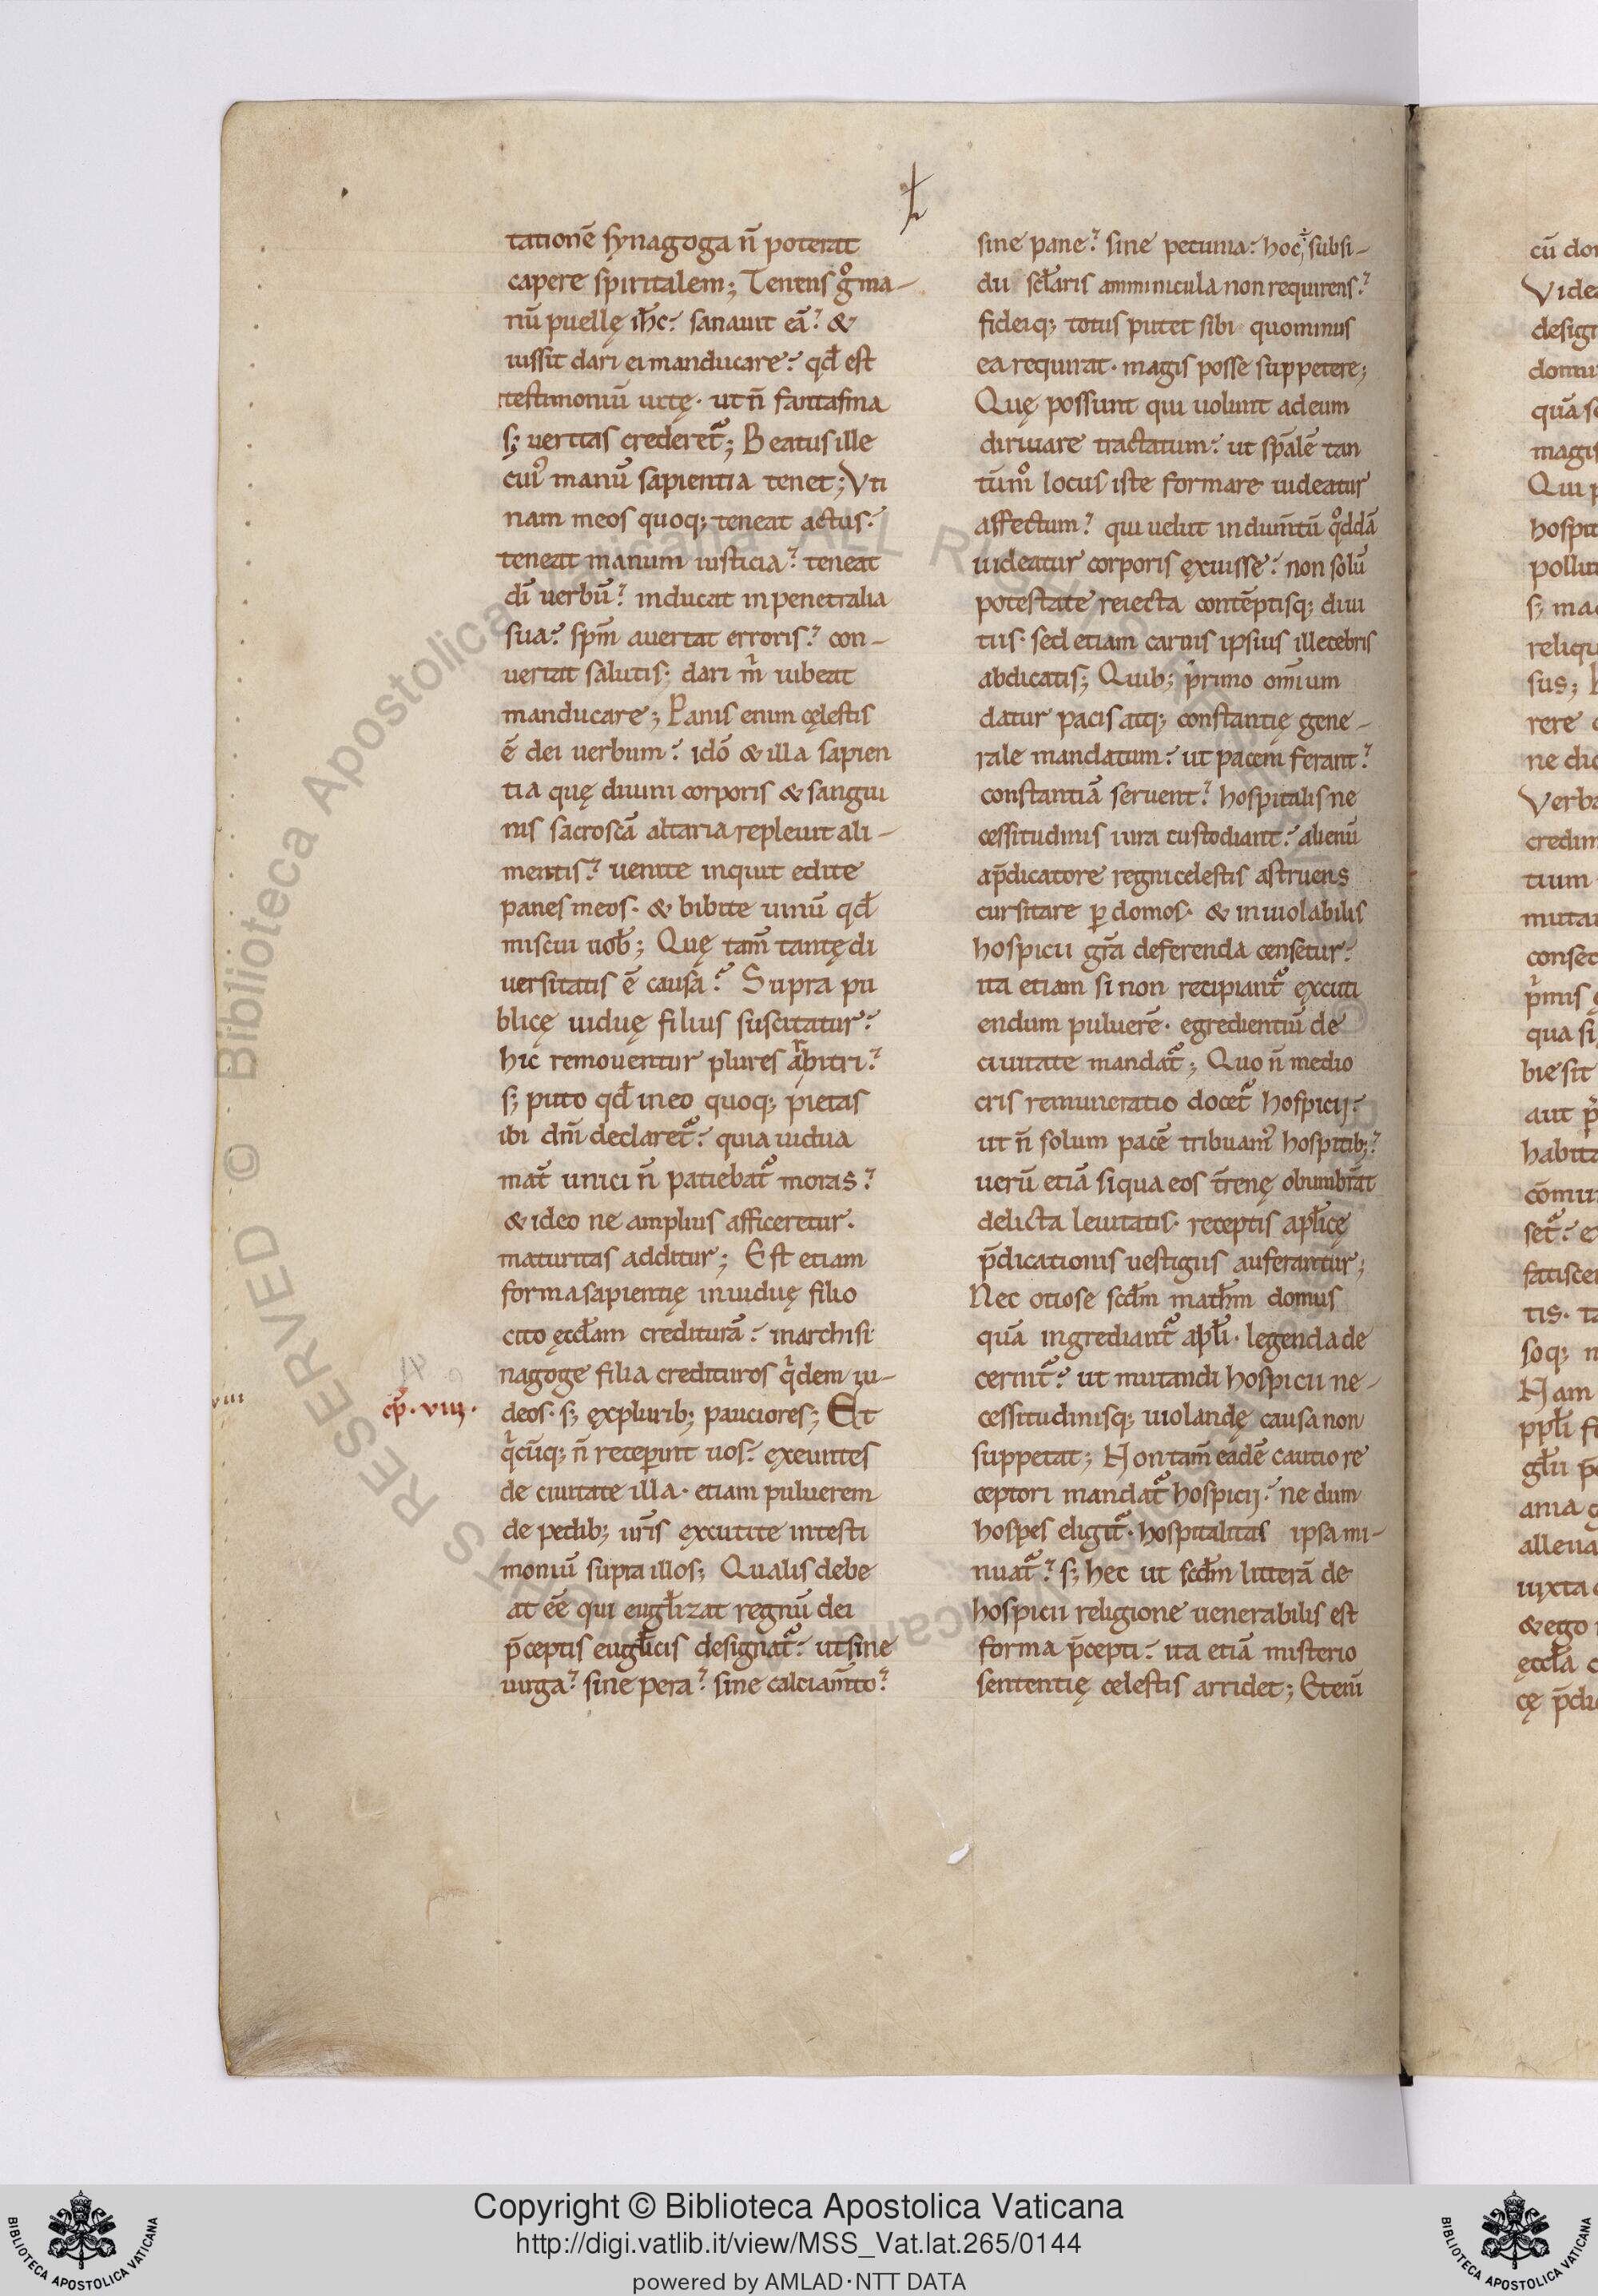 tationē synagoga n̄ poterat
capere spiritalem; Tenens gͦ ma-
nū puellę ih̄c? sanauit eā? &
iussit dari ei manducare? qđ est
testimoniū uitę· ut n̄ fantasma
s; ueritas crederet᷑; Beatus ille
cui᷒ manū sapientia tenet; Vti
nam meos quoq; teneat actus?
teneat manum iusticia? teneat
dī uerbū? inducat in penetralia
sua? sp̄m auertat erroris? con-
uertat salutis· dari m̄ iubeat
manducare; Panis enim cęlestis
ē dei uerbum? idō & illa sapien
tia quę diuini corporis & sangui
nis sacroscā altaria repleuit ali-
mentis? uenite inquit edite
panes meos· & bibite uinū qđ
miscui uob̄; Quę tam̄ tantę di
uersitatis ē causa? Supra pu
blicę uiduę filius suscitatur?
hic remouentur plures arbitri?
s; puto qđ in eo quoq; pietas
ibi dn̄i declaret᷑? quia uidua
mat̄ unici n̄ patiebat᷑ moras?
& ideo ne amplius afficeretur·
maturitas additur; Est etiam
forma sapientię in uiduę filio
cito ęccl̄am credituрā? in archisi
nagoge filia credituros qⁱdem iu-
deos· s; ęx plurib; pauciores; Et
qⁱcūq; n̄ receperint uos? ęxeuntes
de ciuitate illa· etiam puluerem
de pedib; ur̄is ęxcutite in testi
moniū supra illos; Qualis debe
at ēe qui eugl̄izat regnū dei
p̄ceptis eugl̄icis designat᷑? ut sine
uirga? sine pera? sine calciam̄to?
cp̄·viii·
viii
sine pane? sine pecunia? hoc ē subsi-
dii scl̄aris amminicula non requirens?
fideiq; totus putet sibi quominus
ea requirat· magis posse suppetere;
Quę possunt qui uolunt ad eum
diriuare tractatum? ut sp̄alē tan
tūmͦ locus iste formare uideatur
affectum? qui uelut indum̄tū qͦddā
uideatur corporis ęxuisse? non solū
potestate reiecta contēptisq; diui
tiis· sed etiam carnis ipsius illecebris
abdicatis; Quib; pⁱmo omīum
datur pacis atq; constantię gene-
rale mandatum? ut pacem ferant?
constantiā seruent? hospitalis ne
cessitudinis iura custodiant? alienū
a p̄dicatore regni celestis astruens
cursitare ꝑ domos· & inuiolabilis
hospicii gr̄a deferenda censetur?
ita etiam si non recipiant᷑ ęxcuti
endum puluerē· egredientiū de
ciuitate mandat᷑; Quo n̄ medio
cris remuneratio docet᷑ hospicij?
ut n̄ solum pacē tribuam᷒ hospitib;?
uerū etiā si qua eos t̄renę obumbrāt
delicta leuitatis· receptis apl̄icę
p̄dicationis uestigiis auferantur;
Nec otiose scd̄m math̄m domus
quā ingrediant᷑ apl̄i· legenda de
cernit᷑? ut mutandi hospicii ne-
cessitudinisq; uiolandę causa non
suppetat; Non tam̄ eadē cautio re
ceptori mandat᷑ hospicij? ne dum
hospes eligit᷑· hospitalitas ipsa mi-
nuat᷑? s; hec ut scd̄m litterā de
hospicii religione uenerabilis est
forma p̄cepti? ita etiā misterio
sententię celestis arridet; Etenī
cū do
Vide
desig
domi
quā s
magis
Qui p
hospi
pollu
s; ma
reliqu
sus;
rere
ne dic
Verba
credim
tium
muta
conse
pⁱmis
qua si
bie sit
aut p
habita
cōmu
set᷑? e
fatisce
tis· ta
soq; n
Nam
ppl̄i f
gl̄ii p
ania g
alleua
iuxta
& ego
ęccl̄a
cę p̄di
Copyright © Biblioteca Apostolica Vaticana
http://digi.vatlib.it/view/MSS_Vat.lat.265/0144
powered by AMLAD·NTT DATA
BIBLIOTECA APOSTOLICA VATICANA
BIBLIOTECA APOSTOLICA VATICANA